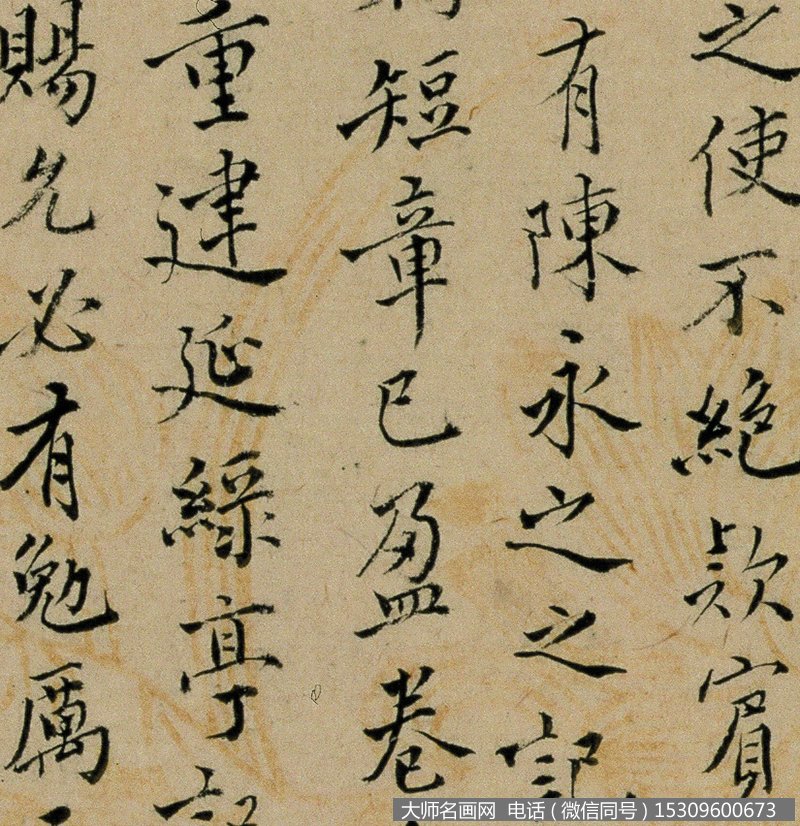 之使不絕款賓
有陳永之之記
短章已盈卷
重建延綠亭記
賜允必有勉厲
大师名画网 电话（微信同号）15309600673